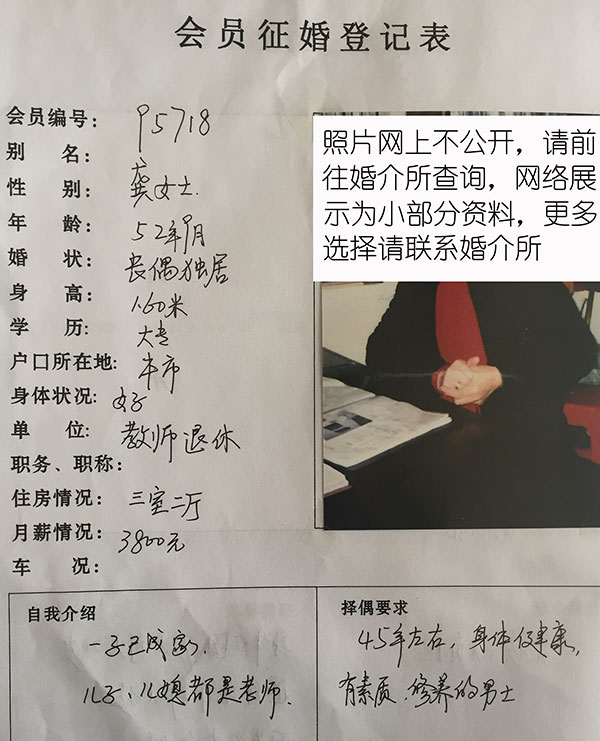 会员征婚登记表
会员编号： P5718
别　名：
性　别： 龚女士.
年　龄： 52年9月
婚　状： 丧偶独居
身　高： 1.60米
学　历： 大专
户口所在地: 本市
身体状况: 好
单　位: 教师退休
职务、职称：
住房情况： 三室二厅
月薪情况： 3800元
车　况：
照片网上不公开，请前
往婚介所查询，网络展
示为小部分资料，更多
选择请联系婚介所
自我介绍
一子已成家.
儿子、儿媳都是老师.
择偶要求
45年左右，身体健康，
有素质.修养的男士